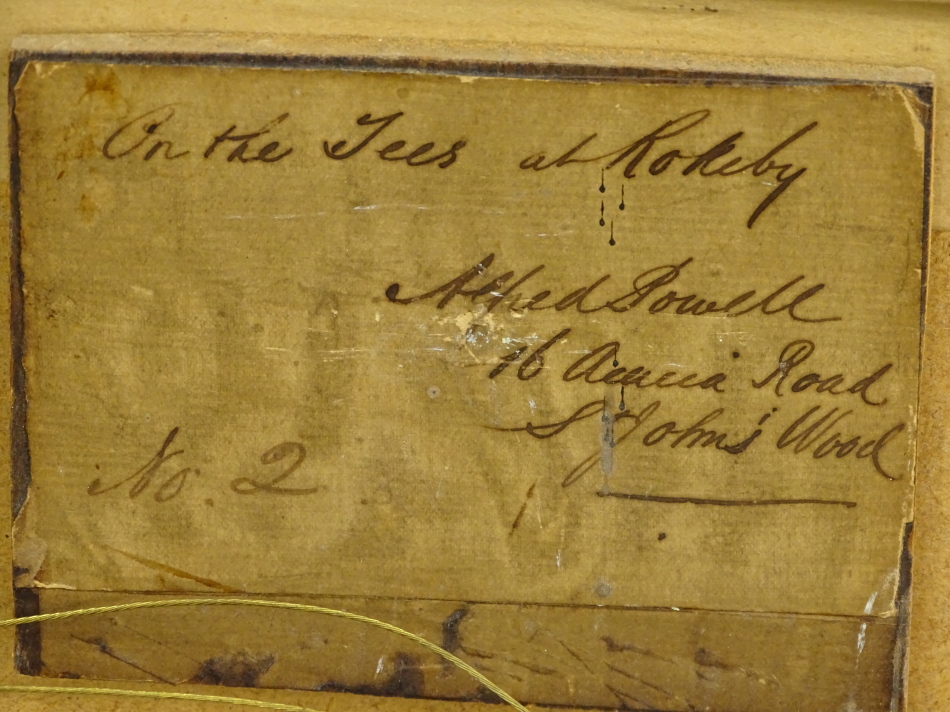 On the Tees at Rokeby
Alfred Powell
16 Acacia Road
S Johns Wood
No. 2